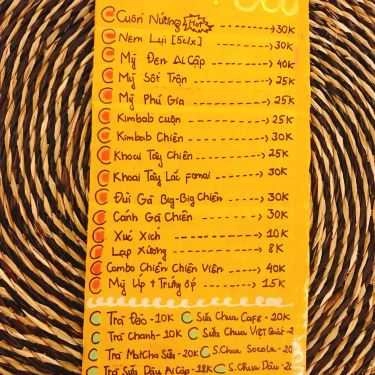 Cuốn Nướng Hot 30K
Nem Lụi [5c/x] 30K
Mỳ Đen Ai Cập 40K
Mỳ Sốt Trộn 25K
Mỳ Phú Gia 25K
Kimbab Cuộn 25K
Kimbab Chiên 30K
Khoai Tây Chiên 25K
Khoai Tây Lắc fomai 30K
Đùi Gà Big-Big Chiên 30K
Cánh Gà Chiên 30K
Xúc Xích 10K
Lạp Xưởng 8K
Combo Chiên Chiên Viên 40K
Mỳ Úp + Trứng ốp 15K
Trà Đào - 10K Sữa Chua Cafe - 20K
Trà Chanh - 10K Sữa Chua Việt Quất - 2
Trà MatCha Sữa - 20K S.Chua Socola - 20
Trà Sữa Dâu Ai Cập - 18K S.Chua Dâu - 20